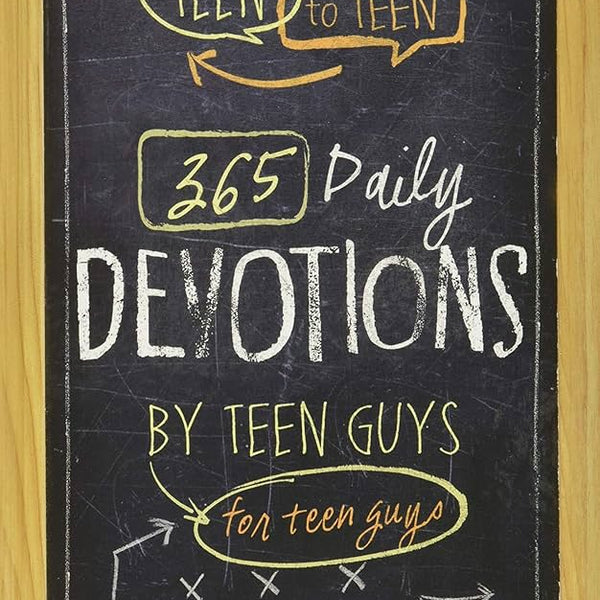 TEEN
to TEEN
365 Daily
DEVOTIONS
BY TEEN GUYS
for teen guys